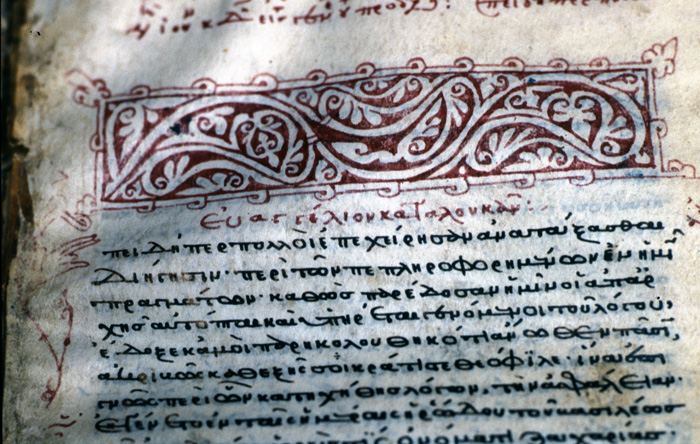 Εὐαγγέλιον κατὰ λουκᾶν:
πειδήπερ πολλοὶ ἐπεχείρησαν ἀνατάξασθαι
Διήγησιν· περὶ τῶν πεπληροφορημένων ἐν ἡμῖν
πραγμάτων· καθὼς παρέδοσαν ἡμῖν οἱ ἀπ' ἀρ
χῆς αὐτόπται καὶ ὑπηρέται γενόμενοι τοῦ λόγου·
ἔδοξε κἀμοὶ παρηκολουθηκότι ἄνωθεν πᾶσιν
ἀκριβῶς καθεξῆς σοι κράτιστε θεόφιλε· ἵνα ἐπι
γνῶς περὶ ὧν κατηχήθης λόγων, τὴν ἀσφάλειαν·
Ἐγένετο ἐν ταῖς ἡμέραις ἡρώδου τοῦ βασιλέως
ὀνόματι